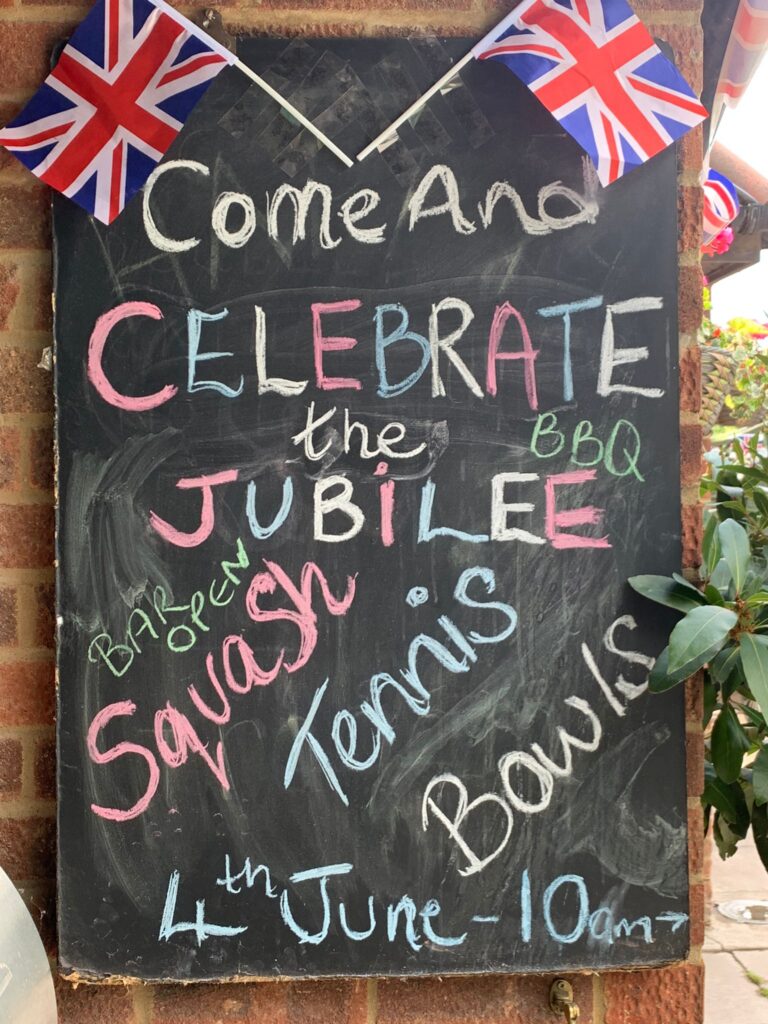 Come And
CELEBRATE
the
BBQ
JUBiLEE
BAR
OPEN
Squash
Tennis
Bowls
4th June - 10am →